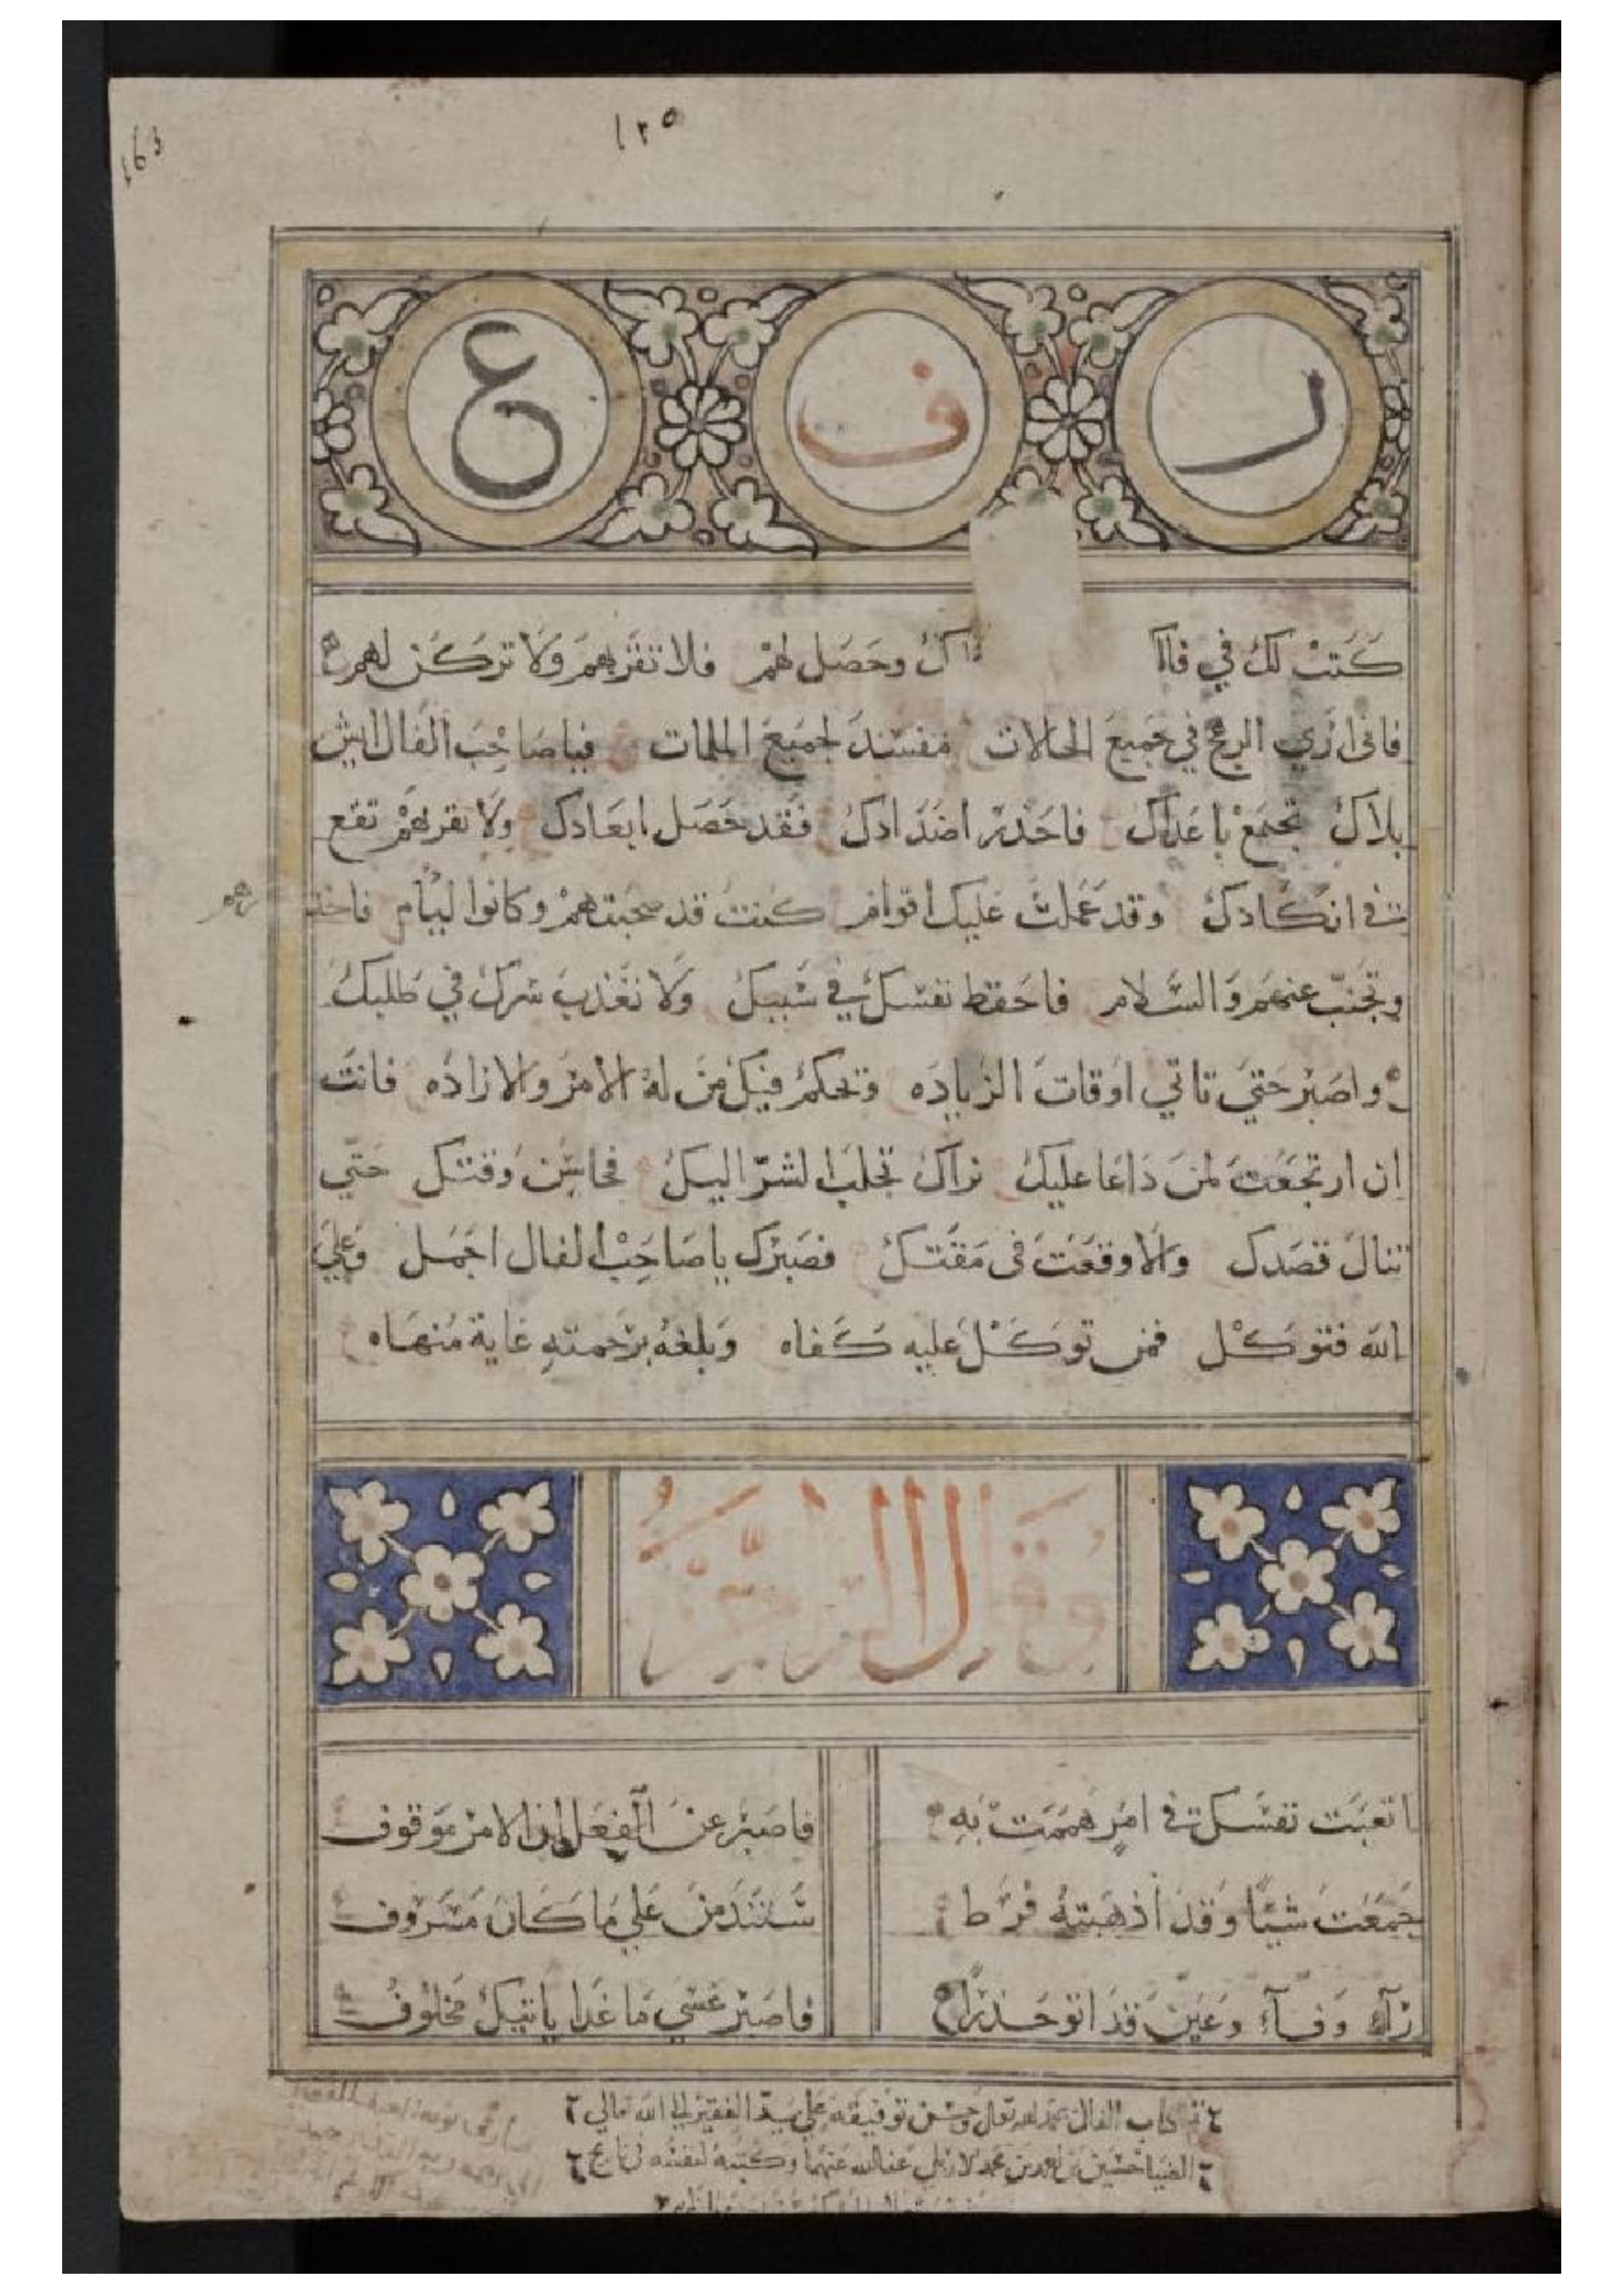 ١٢٥
163
ر ف ع
كتب لك في فالك اك وحصل لهم فلا تقربهم ولا تركن لهم
فانى ارى الربح في جميع الحالات مفسد لجميع الملمات فيا صاحب الفال ايش
بلاك تجتمع باعداك فاحذر اضدادك فقد حصل ابعادك ولا تقربهم تقع
في انكادك وقد عملت عليك اقوام كنت قد صحبتهم وكانوا ليام فاحذرهم
وتجنب عنهم والسلام فاحفظ نفسك في سبيك ولا تعذب سرك في طلبك
واصبر حتى تاتي اوقات الزياده وتحكم فيك من له الامر والاراده فانت
ان ارتجعت لمن داعا عليك نراك تجلب الشر اليك فحاسن وقتك حتى
تنال قصدك والا وقعت فى مقتك فصبرك يا صاحب الفال اجمل وعلى
الله فتوكل فمن توكل عليه كفاه وبلغه برحمته غاية منهاه
وقال الراجز
اتعبت نفسك في امر هممت به فاصبر عن الفعل ان الامر موقوف
جمعت شيًا وقد اذهبته فرطا ستندمن على ما كان مسروف
رآء وفآء وعين قد اتو حذرا فاصبر عسى ما غدا ياتيك مخلوف
تم كتاب الفال بحمد الله تعالى وحسن توفيقه على يد الفقير الى الله تعالى
حسين بن احمد بن محمد الاربلي عفا الله عنهما وكتبه لنفسه في تاريخ